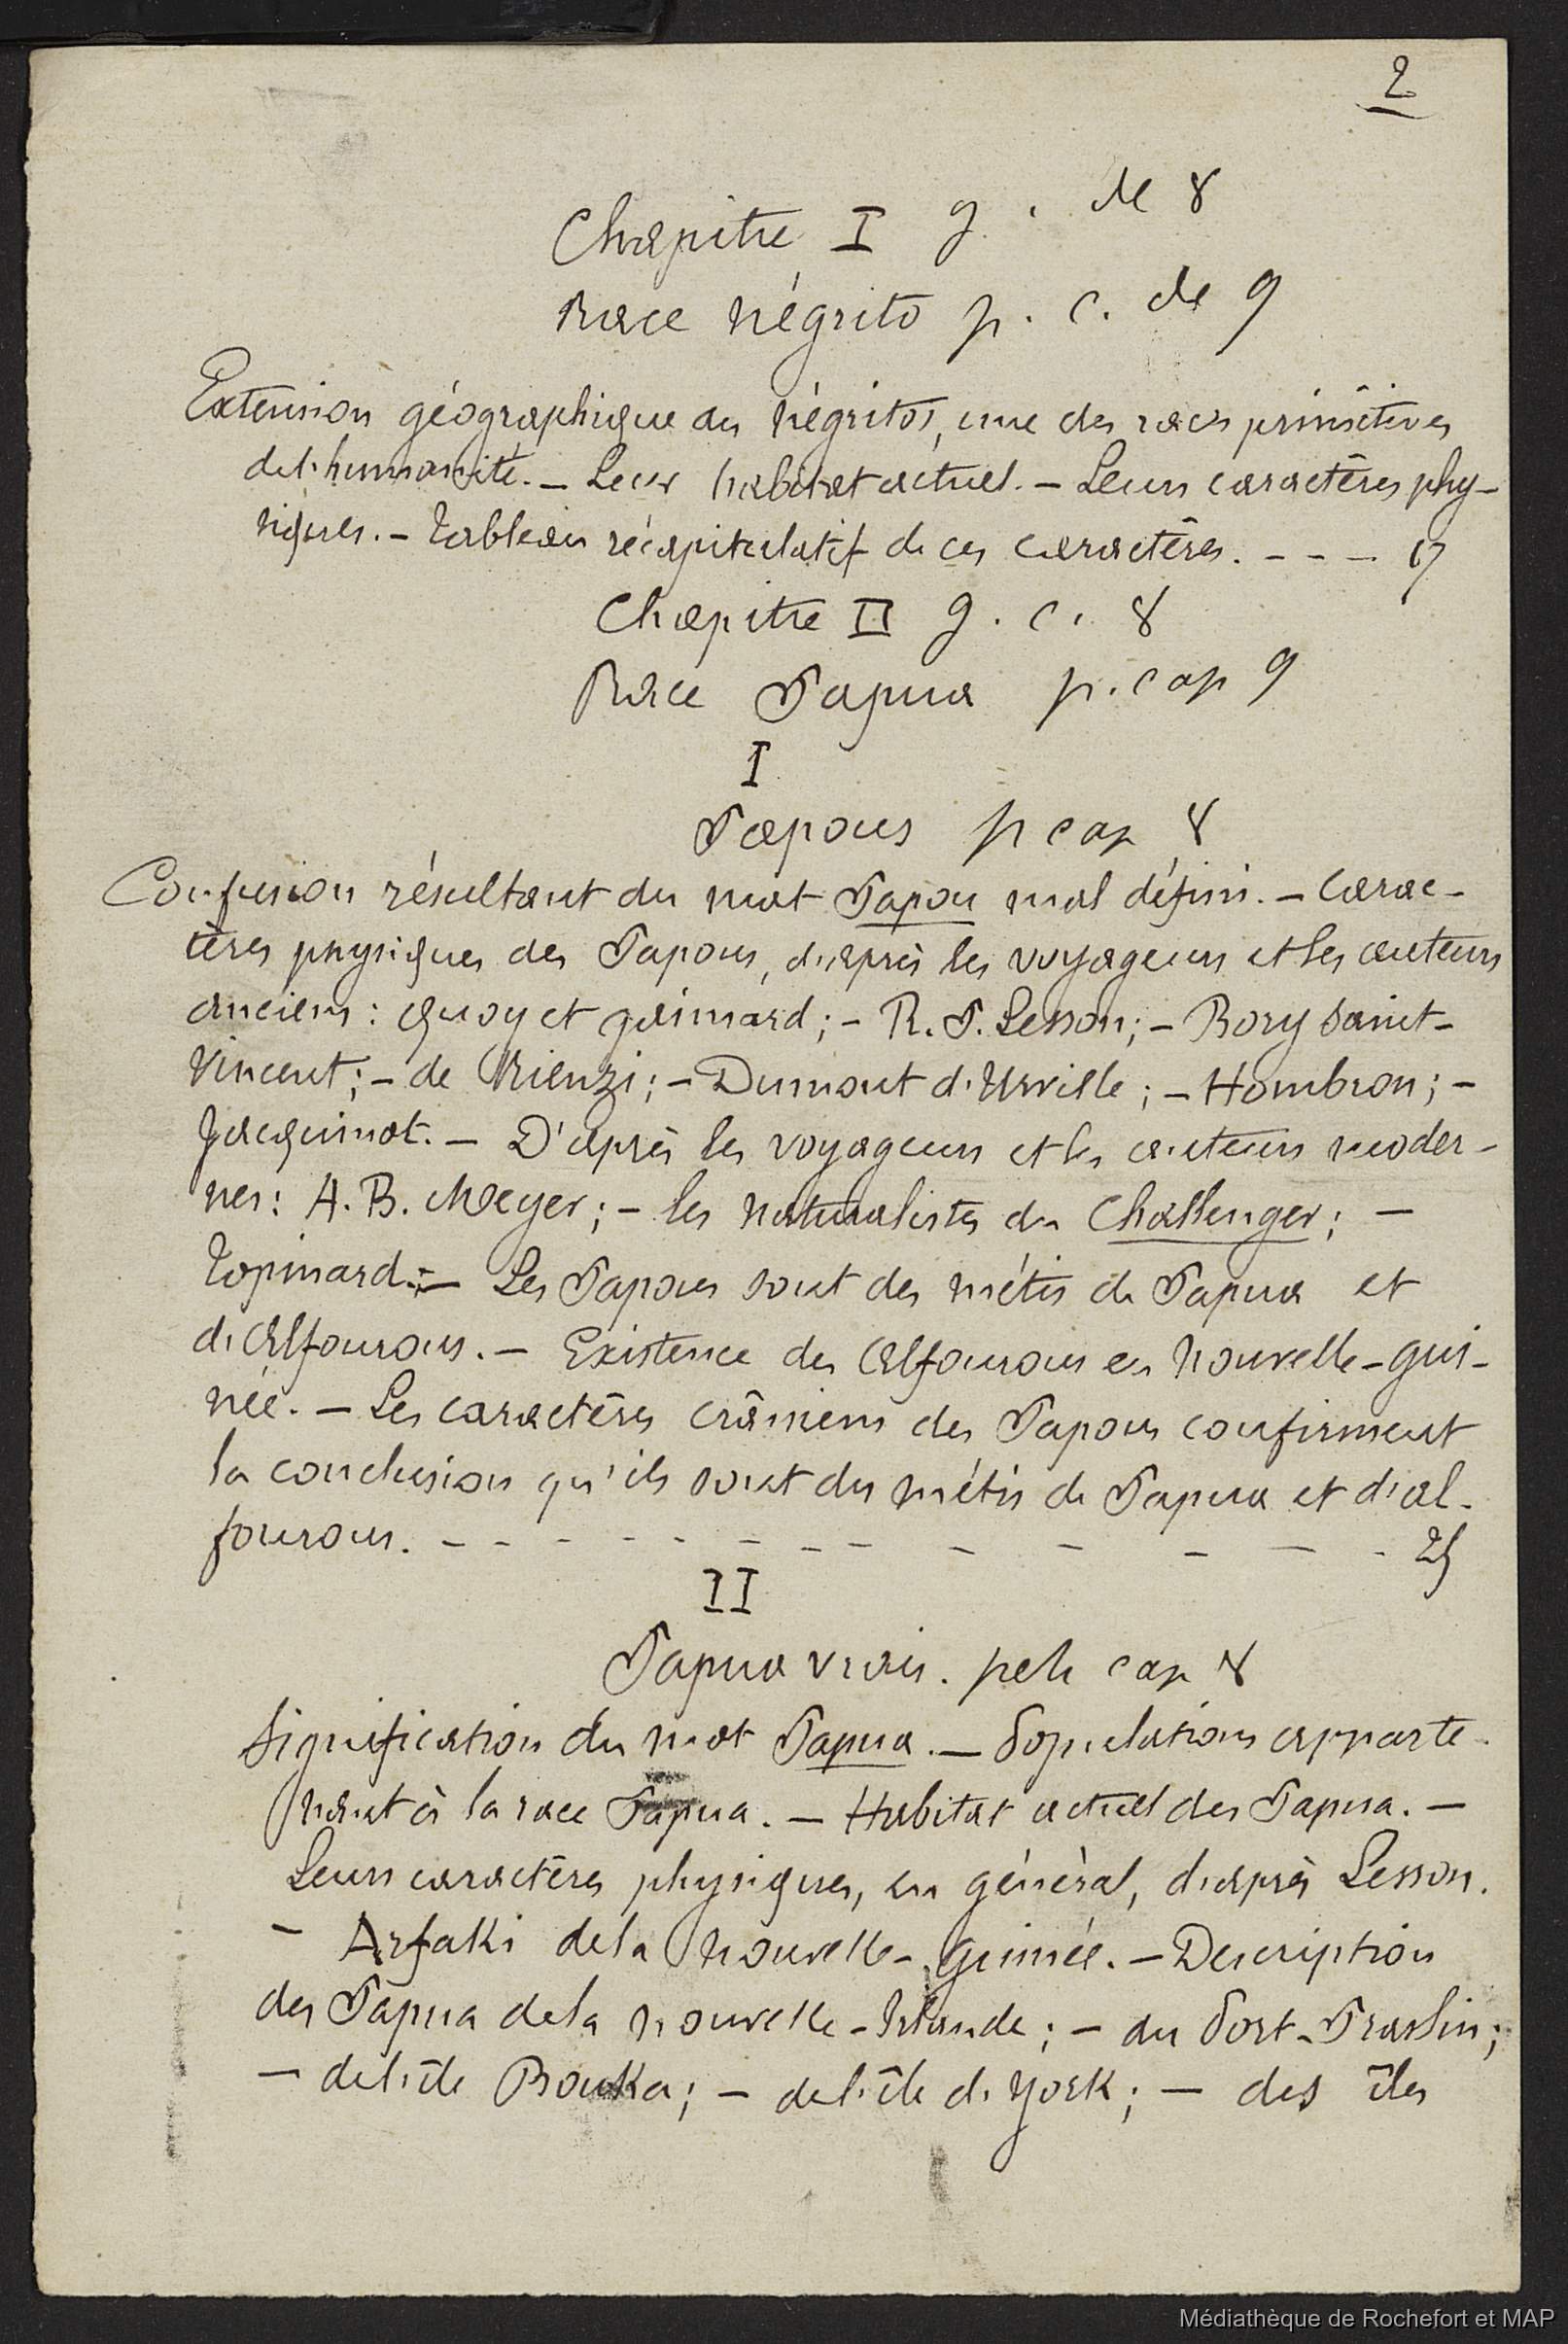 2
Chapitre I g. de 8
Race négrito p. c. de 9
Extension géographique des négritos, une des races primitives
de l'humanité. — Leur habitat actuel. — Leurs caractères phy-
siques. — Tableau récapitulatif de ces caractères. - - - 17
Chapitre II g. c. 8
Race Papua p. cap 9
I
Papous p cap 8
Confusion résultant du mot Papou mal défini. — Carac-
tères physiques des Papous, d'après les voyageurs et les auteurs
anciens : Quoy et gaimard ; — R. P. Lesson ; — Bory Saint-
Vincent ; — de Rienzi ; — Dumont d'Urville ; — Hombron ; —
Jacquinot. — D'après les voyageurs et les auteurs moder-
nes : A. B. Meyer ; — les naturalistes du Challenger ; —
Topinard. — Les Papous sont des métis de Papua et
d'Alfourous. — Existence des Alfourous en Nouvelle-Gui-
née. — Les caractères crâniens des Papous confirment
la conclusion qu'ils sont des métis de Papua et d'al-
fourous. - - - - - - - - - - - - - 25
II
Papua vrais. pets cap 8
Signification du mot Papua. — Populations apparte-
nant à la race Papua. — Habitat actuel des Papua. —
Leurs caractères physiques, en général, d'après Lesson.
— Arfaki de la Nouvelle-Guinée. — Description
des Papua de la nouvelle-Irlande ; — du Port-Praslin ;
— de l'île Bouka ; — de l'île d'York ; — des îles
Médiathèque de Rochefort et MAP